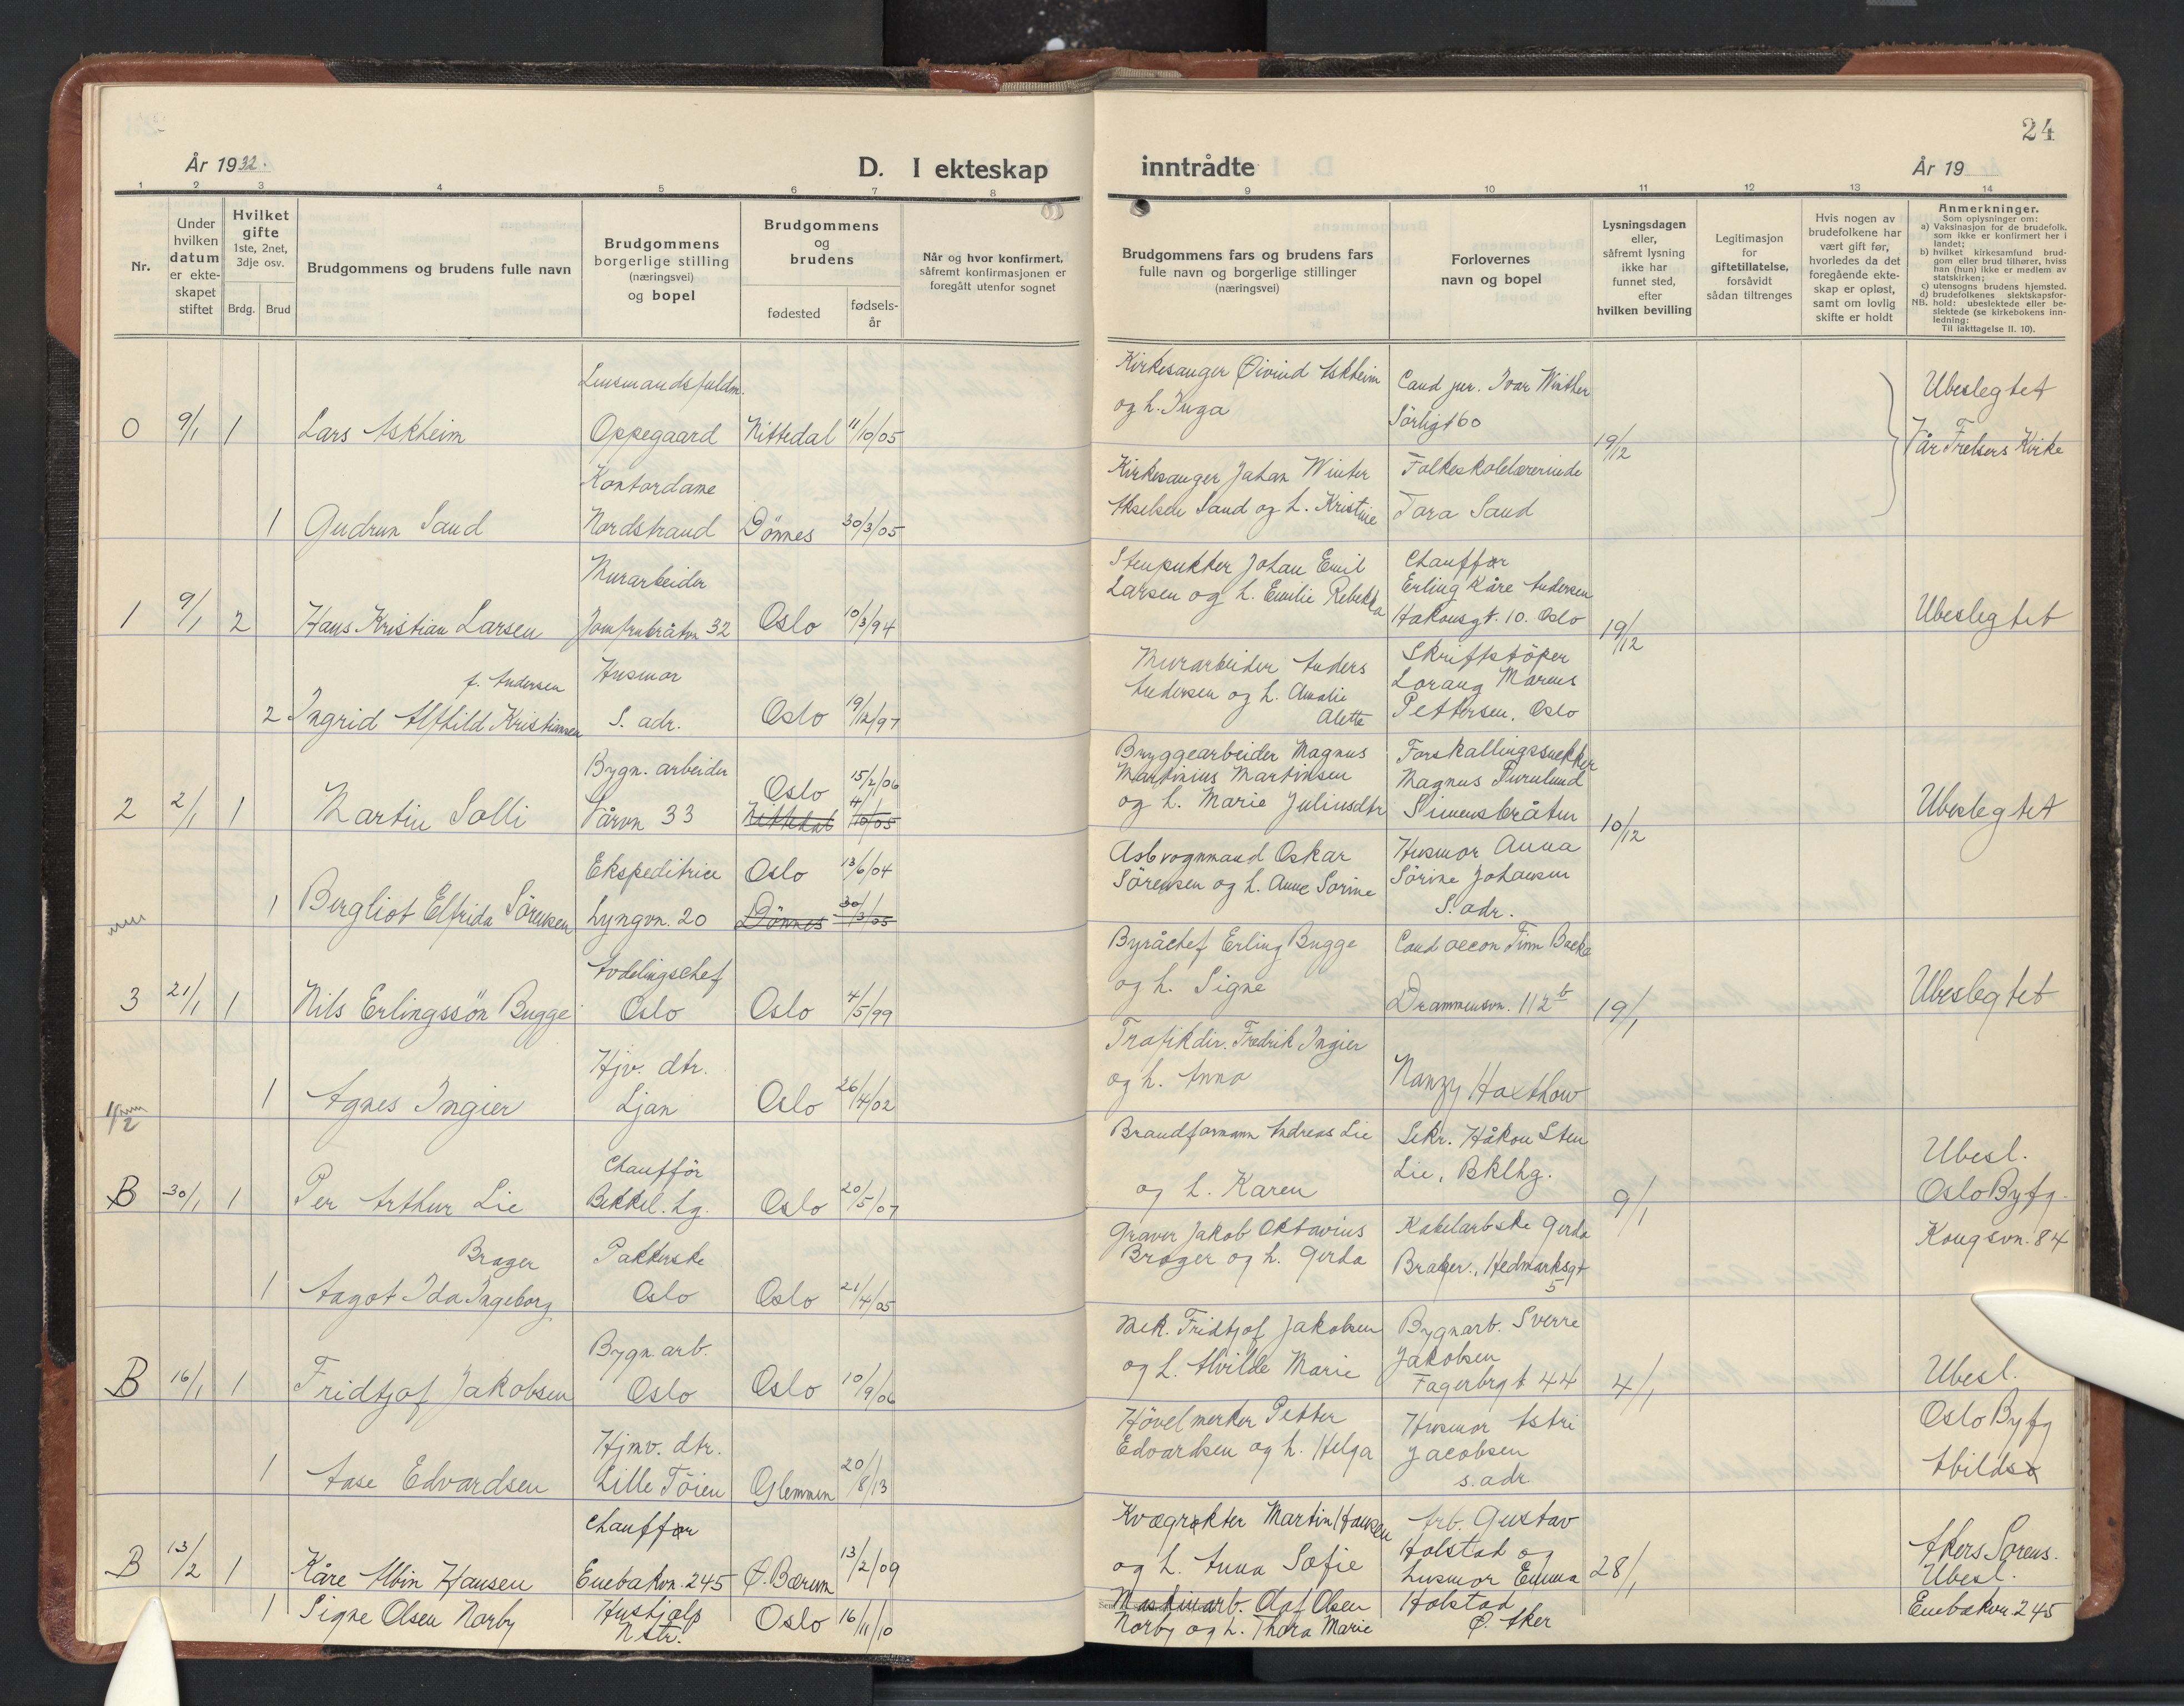 24
År 1932.
D. I ekteskap inntrådte
År 19
1 2 3 4 5 6 7 8 9 10 11 12 13 14
Nr.
Under hvilken datum er ekteskapet stiftet
Hvilket gifte 1ste, 2net, 3dje osv.
Brdg. Brud
Brudgommens og brudens fulle navn
Brudgommens borgerlige stilling (næringsvei) og bopel
Brudgommens og brudens
fødested
fødselsår
Når og hvor konfirmert, såfremt konfirmasjonen er foregått utenfor sognet
Brudgommens fars og brudens fars fulle navn og borgerlige stillinger (næringsvei)
Forlovernes navn og bopel
Lysningsdagen eller, såfremt lysning ikke har funnet sted, efter hvilken bevilling
Legitimasjon for giftetillatelse, forsåvidt sådan tiltrenges
Hvis nogen av brudefolkene har vært gift før, hvorledes da det foregående ekteskap er opløst, samt om lovlig skifte er holdt
Anmerkninger.
Som oplysninger om:
a) Vaksinasjon for de brudefolk, som ikke er konfirmert her i landet;
b) hvilket kirkesamfund brudgom eller brud tilhører, hviss han (hun) ikke er medlem av statskirken;
c) utensogns brudens hjemsted.
d) brudefolkenes slektskapsforhold: ubeslektede eller beslektede (se kirkebokens innledning:
NB.
Til iakttagelse II. 10).
0 9/1 1 Lars Askheim
Lensmandsfuldm.
Oppegaard Nittedal 11/10/05
Kirkesanger Øivind Askheim
og h. Inga
Cand jur. Ivar Winther
Sörligt 60
19/12
Ubeslegtet
Vår Frelsers Kirke
1 Gudrun Sand
Kontordame
Nordstrand Dönnes 30/3/05
Kirkesanger Johan Winter
Akselsen Sand og h. Kristine
Folkeskolelærerinde
Tora Sand
1 9/1 2 Hans Kristian Larsen
Murarbeider
Jomfrubråtvn 32 Oslo 10/3/94
Stenpukker Johan Emil
Larsen og h. Emilie Rebekka
Chauffør
Erling Kåre Andersen
Hakonsgt. 10. Oslo
19/12
Ubeslegtet
f. Andersen
2 Ingrid Alfhild Kristiansen
Husmor
S. adr. Oslo 19/12/97
Murarbeider Anders
Andersen og h. Amalie
Alette
Skriftstöper
Lorang Marius
Pettersen, Oslo
2 2/1 1 Martin Solli
Bygn. arbeider
Vårvn 33
Oslo 15/2/06
Nittedal 4/10/05
Bryggearbeider Magnus
Martinius Martinsen
og h. Marie Juliusdtr
Forskallingssnekker
Magnus Furulund
Simensbråten
10/12
Ubeslegtet
1 Bergliot Elfrida Sörensen
Ekspeditrice Oslo 13/6/04
Lyngvn. 20 Dönnes 30/3/05
Asbvognmand Oskar
Sörensen og h. Anne Sorine
Husmor Anna
Sörine Johansen
S. adr.
3 21/1 1 Nils Erlingssön Bugge
Avdelingschef
Oslo Oslo 4/5/99
Byråchef Erling Bugge
og h. Signe
Cand oecon Finn Backe
Drammensvn. 112 b
19/1
Ubeslegtet
1 Agnes Ingier
Hjv. dtr.
Ljan Oslo 26/4/02
Trafikdir. Fredrik Ingier
og h. Anna
Nanzy Haxthow
B 30/1 1 Per Arthur Lie
Chaufför
Bekkel. hg. Oslo 20/5/07
Brandformann Andreas Lie
og h. Karen
Sekr. Håkon Sten
Lie, Bklhg.
9/1
Ubesl.
Oslo Byfg.
Kongsvn. 84
Brager
1 Aagot Ida Ingeborg
Pakkerske
Oslo Oslo 21/4/05
Graver Jakob Oktavius
Brager og h. Gerda
Kabelarbske Gerda
Brager, Hedmarksgt
5
B 16/1 1 Fridtjof Jakobsen
Bygn. arb.
Oslo Oslo 10/9/06
Mek. Fridtjof Jakobsen
og h. Alvilde Marie
Bygnarb. Sverre
Jakobsen
Fagerbrgt. 44
4/1
Ubesl.
Oslo Byfg
Abildsø
1 Aase Edvardsen
Hjmv. dtr.
Lille Töien Glemmen 20/8/13
Hövelmerker Petter
Edvardsen og h. Helga
Husmor Astri
Jacobsen
s. adr
B 13/2 1 Kåre Albin Hansen
Chauffør
Enebakvn. 245 Ø. Bærum 13/2/09
Kvægrøkter Martin Hansen
og h. Anna Sofie
Arb. Gustav
Holstad og
husmor Emma
Holstad
Ø. Aker
28/1
Akers Sorens.
Ubesl.
Enebakvn. 245
1 Signe Olsen Norby
Hushjælp
Nstr. Oslo 16/11/10
Maskinarb. Olaf Olsen
Norby og h. Thora Marie